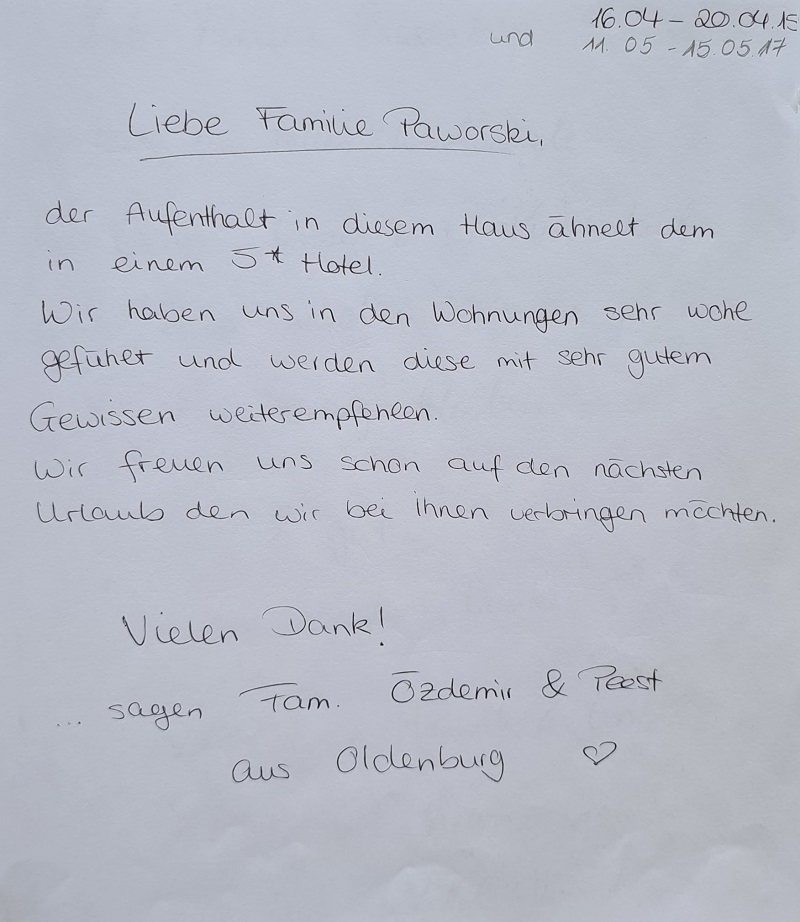 16.04 – 20.04.15
und 11.05 - 15.05.17
Liebe Familie Paworski,
der Aufenthalt in diesem Haus ähnelt dem
in einem 5* Hotel.
Wir haben uns in den Wohnungen sehr wohl
gefühlt und werden diese mit sehr gutem
Gewissen weiterempfehlen.
Wir freuen uns schon auf den nächsten
Urlaub den wir bei ihnen verbringen möchten.
Vielen Dank!
... sagen Fam. Özdemir & Peest
aus Oldenburg ♡